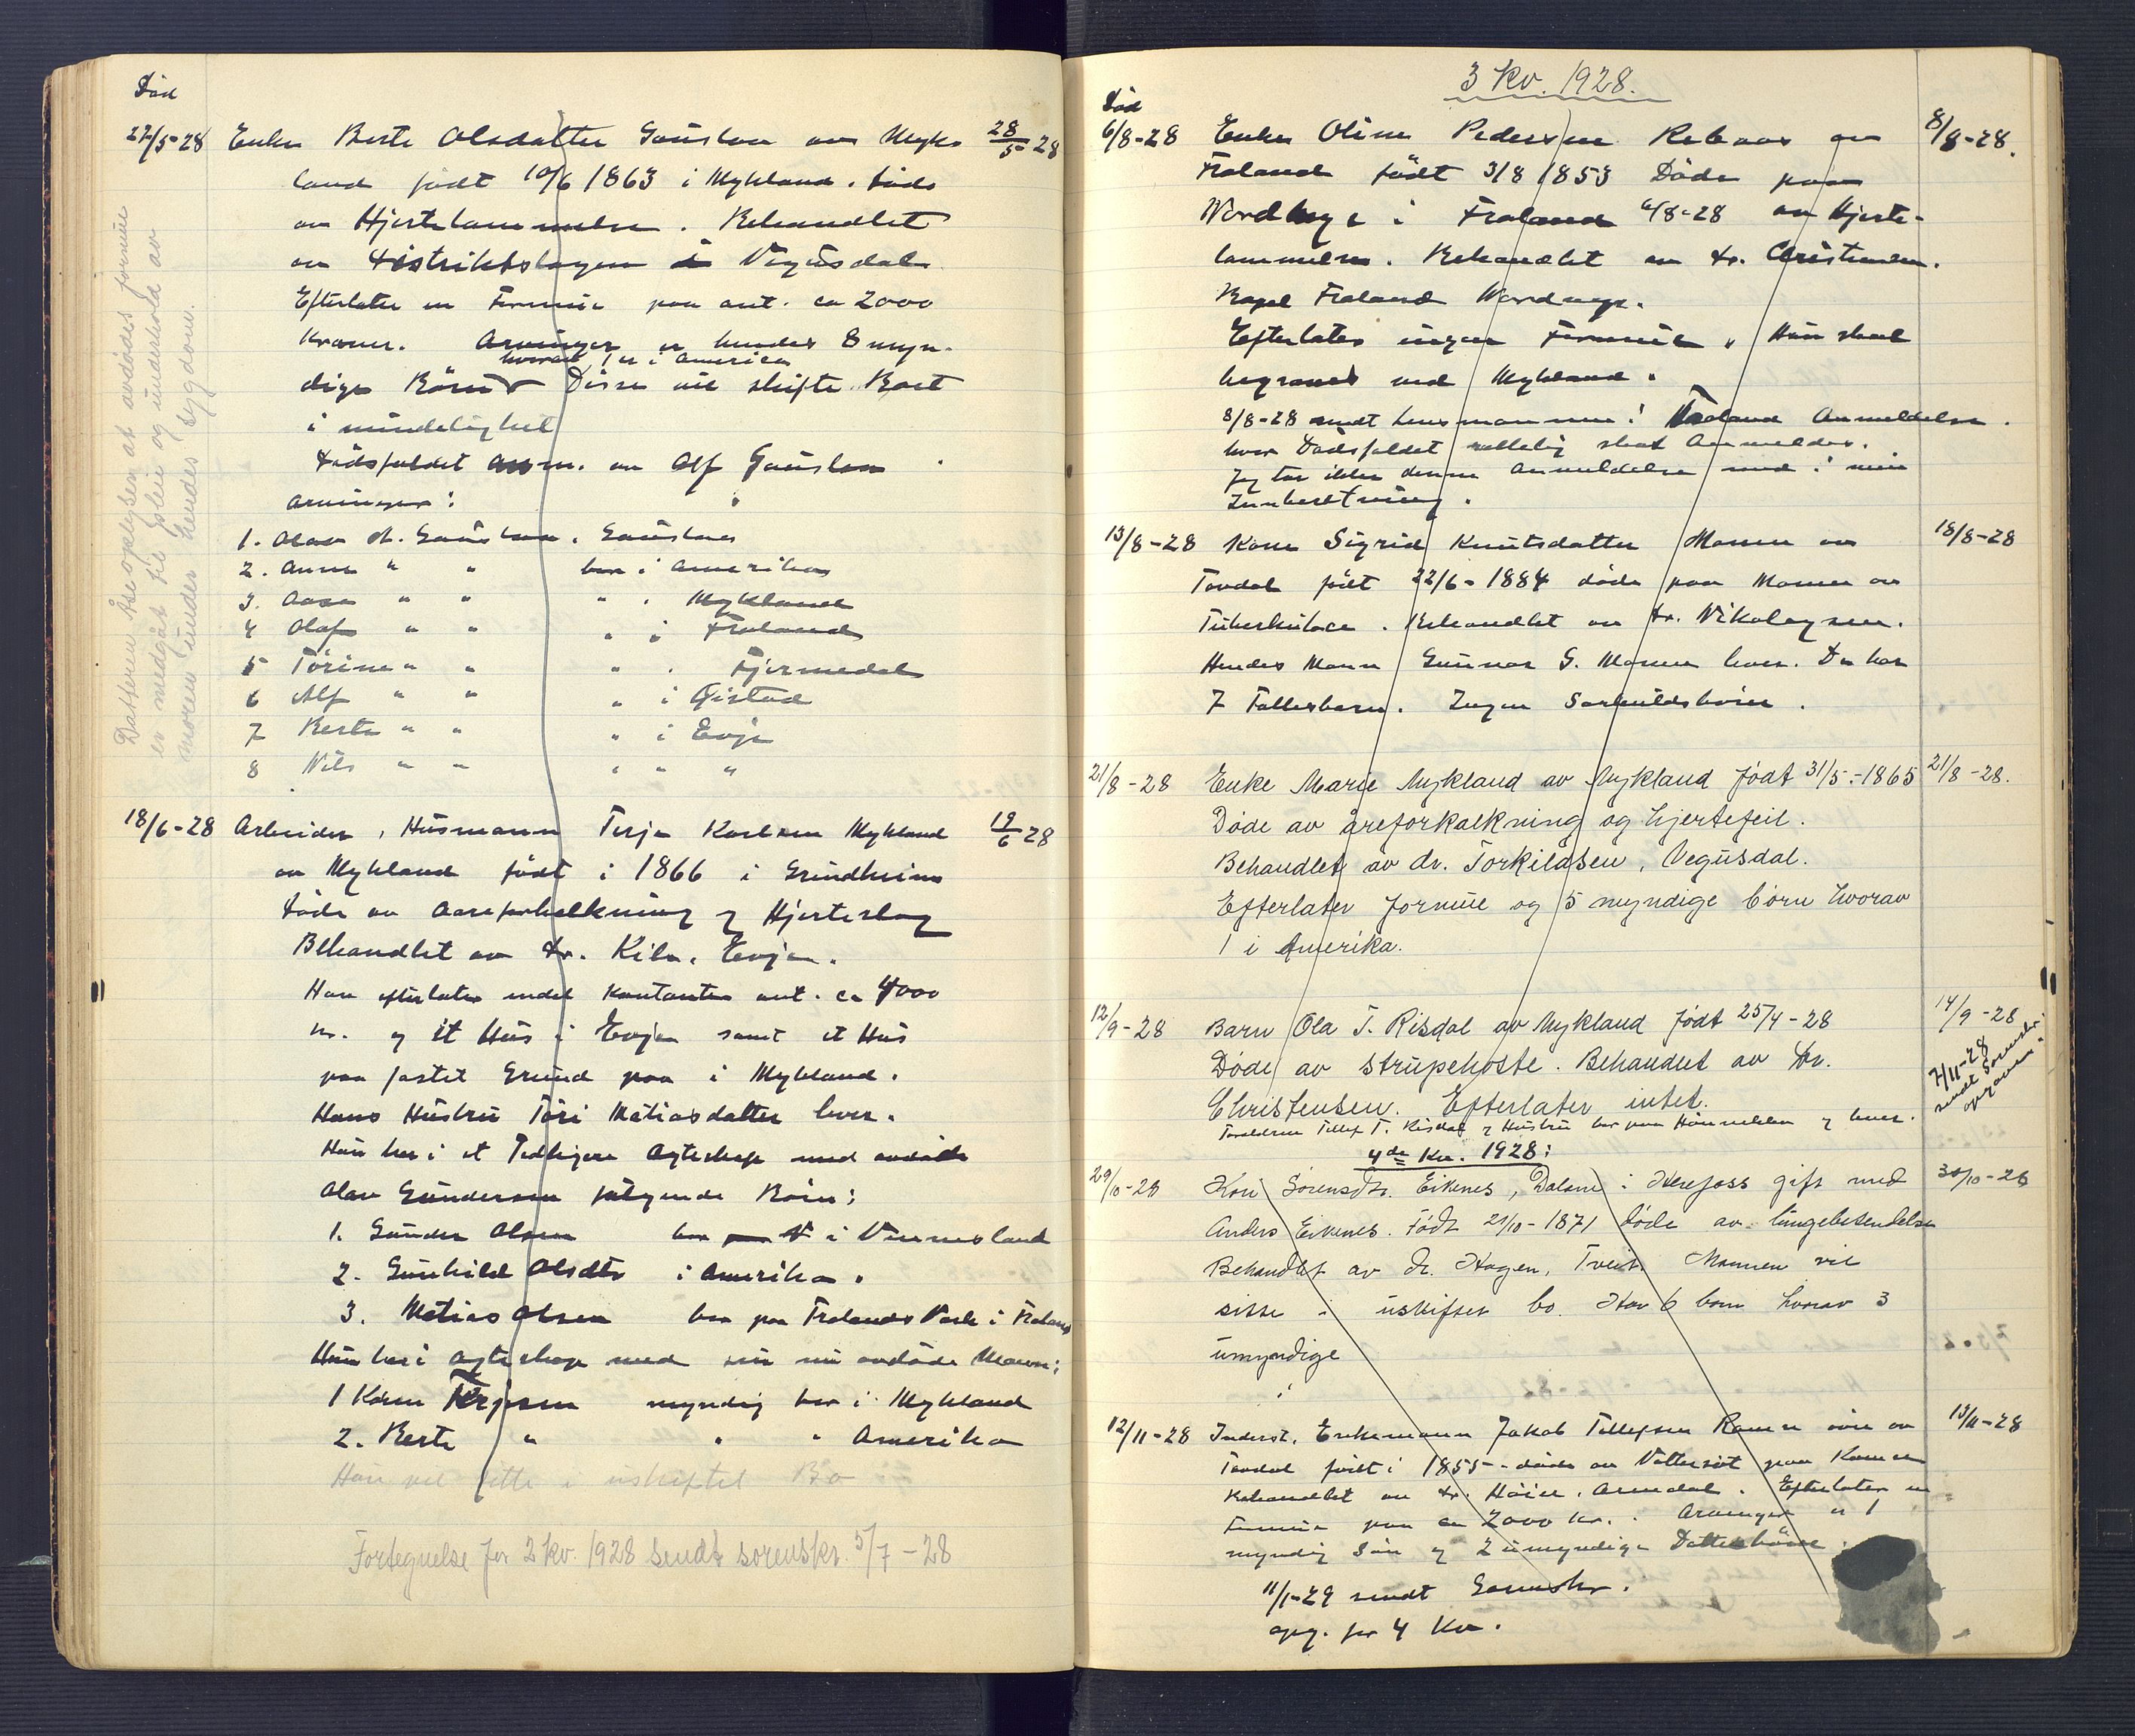 Død
27/5-28 Enke Berte Olsdatter Gauslaa av Myk- 28/5-28
land født 10/6 1863 i Mykland. Døde
av Hjertelammelse. Behandlet
av Distriktslægen i Vegusdal
Efterlater en Formue paa ant. ca 2000
Kroner. Arvinger er hendes 8 myn-
hvorav 1 er i America
dige Børn Disse vil skifte Boet
i mindelighet
Dødsfaldet anm. av Alf Gauslaa
Arvinger:
1. Olav O. Gauslaa, Gauslaa
2. Anne " " bor i Amerika
3. Aase " " " i Mykland
4 Olaf " " " i Froland
5 Torine " " " i Fjermedal
6 Alf " " " i Øistad
7 Berte " " " i Evje
8 Nils " " " " "
Datteren Åse oplyser at avdødes formue
er medgåt til pleie og underhold av
moren under hendes sygdom.
18/6-28 Arbeider, Husmann Terje Karlsen Mykland 19/6 28
av Mykland født i 1866 i Grindheim
Døde av Aareforkalkning og Hjerteslag
Behandlet av Dr. Kile, Evje.
Han efterlater endel Kontanter ant. ca 4000
kr. og et Hus i Evje samt et Hus
paa festet Grund paa i Mykland.
Hans Hustru Tori Matiasdatter lever.
Hun har i et Tidligere Ægteskap med avdøde
Olav Gundersen følgende Børn:
1. Gunder Olsen bor i Vennesland
2. Gunhild Olsdtr i Amerika.
3. Matias Olsen bor paa Frolands Verk i Froland
Hun har i Ægteskap med sin nu avdøde Mann:
1 Karen Terjesen myndig bor i Mykland
2. Berte " " " Amerika
Hun vil sitte i uskiftet Bo
Fortegnelse for 2 kv. 1928 sendt sorenskr. 5/7-28
3 Kv. 1928.
Død
6/8-28 Enke Oline Pedersen Rebaas av 8/8-28.
Froland født 3/8 1853 Døde paa
i Froland 6/8-28 av Hjerte-
lammelse. Behandlet av Dr. Christensen.
Froland
Efterlater ingen Formue. Hun skal
begraves ved Mykland.
8/8-28 sendt lensmannen i Froland Anmeldelse
hvor Dødsfaldet rettelig skal Anmeldes.
Jeg tar ikke denne Anmeldelse med i min
Innberetning.
13/8-28 Kone Sigrid Knutsdatter Momen av 18/8-28
Tovdal født 22/6-1884 døde paa Momen av
Tuberkulose. Behandlet av Dr. Nikolaysen.
Hendes Mann Gunnar G. Momen lever. De har
7 Fællesbarn. Ingen Særkuldsbørn.
21/8-28 Enke Marie Mykland av Mykland født 31/5-1865 21/8-28.
Døde av åreforkalkning og hjertefeil.
Behandlet av dr. Torkildsen, Vegusdal.
Efterlater formue og 5 myndige børn hvorav
1 i Amerika.
12/9-28 Barn Ola T. Risdal av Mykland født 25/4-28 14/9-28
Døde av strupehoste. Behandlet av Dr.
Christensen. Efterlater intet.
Forældrene Tellef T. Risdal og Hustru bor paa og lever.
7/11-28
sendt Sorenskr.
opgaven.
4de Kv. 1928:
29/10-28 Kari Sørensdtr. Eikenes, Dalen i Herefoss gift med 30/10-28
Anders Eikenes. Født 21/10-1871 døde av lungebetendelse
Behandlet av dr. Hagen, Tveit. Mannen vil
sitte i uskiftet bo. Har 6 barn hvorav 3
umyndige
12/11-28 Inderst, Enkemann Jakob Tellefsen Ramse av 13/11-28
Tovdal født i 1855 døde av Vattersot paa
Behandlet av Dr. Høier, Arendal. Efterlater en
Formue paa ca 2000 kr. Arvinger er 1
myndig Søn og 2 umyndige Datterbørn.
11/1-29 sendt Sorenskr.
opg. for 4 Kv.